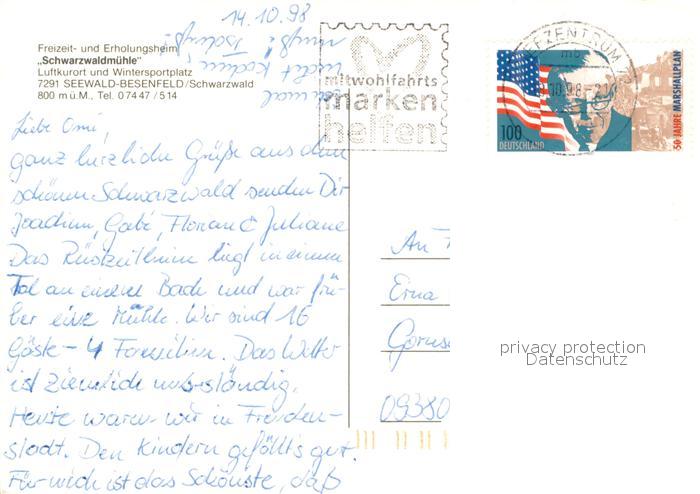 14.10.98
Freizeit- und Erholungsheim
„Schwarzwaldmühle"
Luftkurort und Wintersportplatz
7291 SEEWALD-BESENFELD/Schwarzwald
800 m ü.M., Tel. 0 74 47 / 514
mitwohlfahrts
marken
helfen
BRIEFZENTRUM
100
DEUTSCHLAND
50 JAHRE MARSHALLPLAN
Liebe Omi,
ganz herzliche Grüße aus dem
schönen Schwarzwald senden Dir
Joachim, Gabi, Florian & Juliane
Das Rüstzeitheim liegt in einem
Tal an einem Bach und war frü-
her eine Mühle. Wir sind 16
Gäste – 4 Familien. Das Wetter
ist ziemlich unbeständig.
Heute waren wir in Freuden-
stadt. Den Kindern gefällt's gut.
Für mich ist das Schönste, daß
einmal
nicht kochen
muß! Tschüß!
An
Erna
09380
privacy protection
Datenschutz